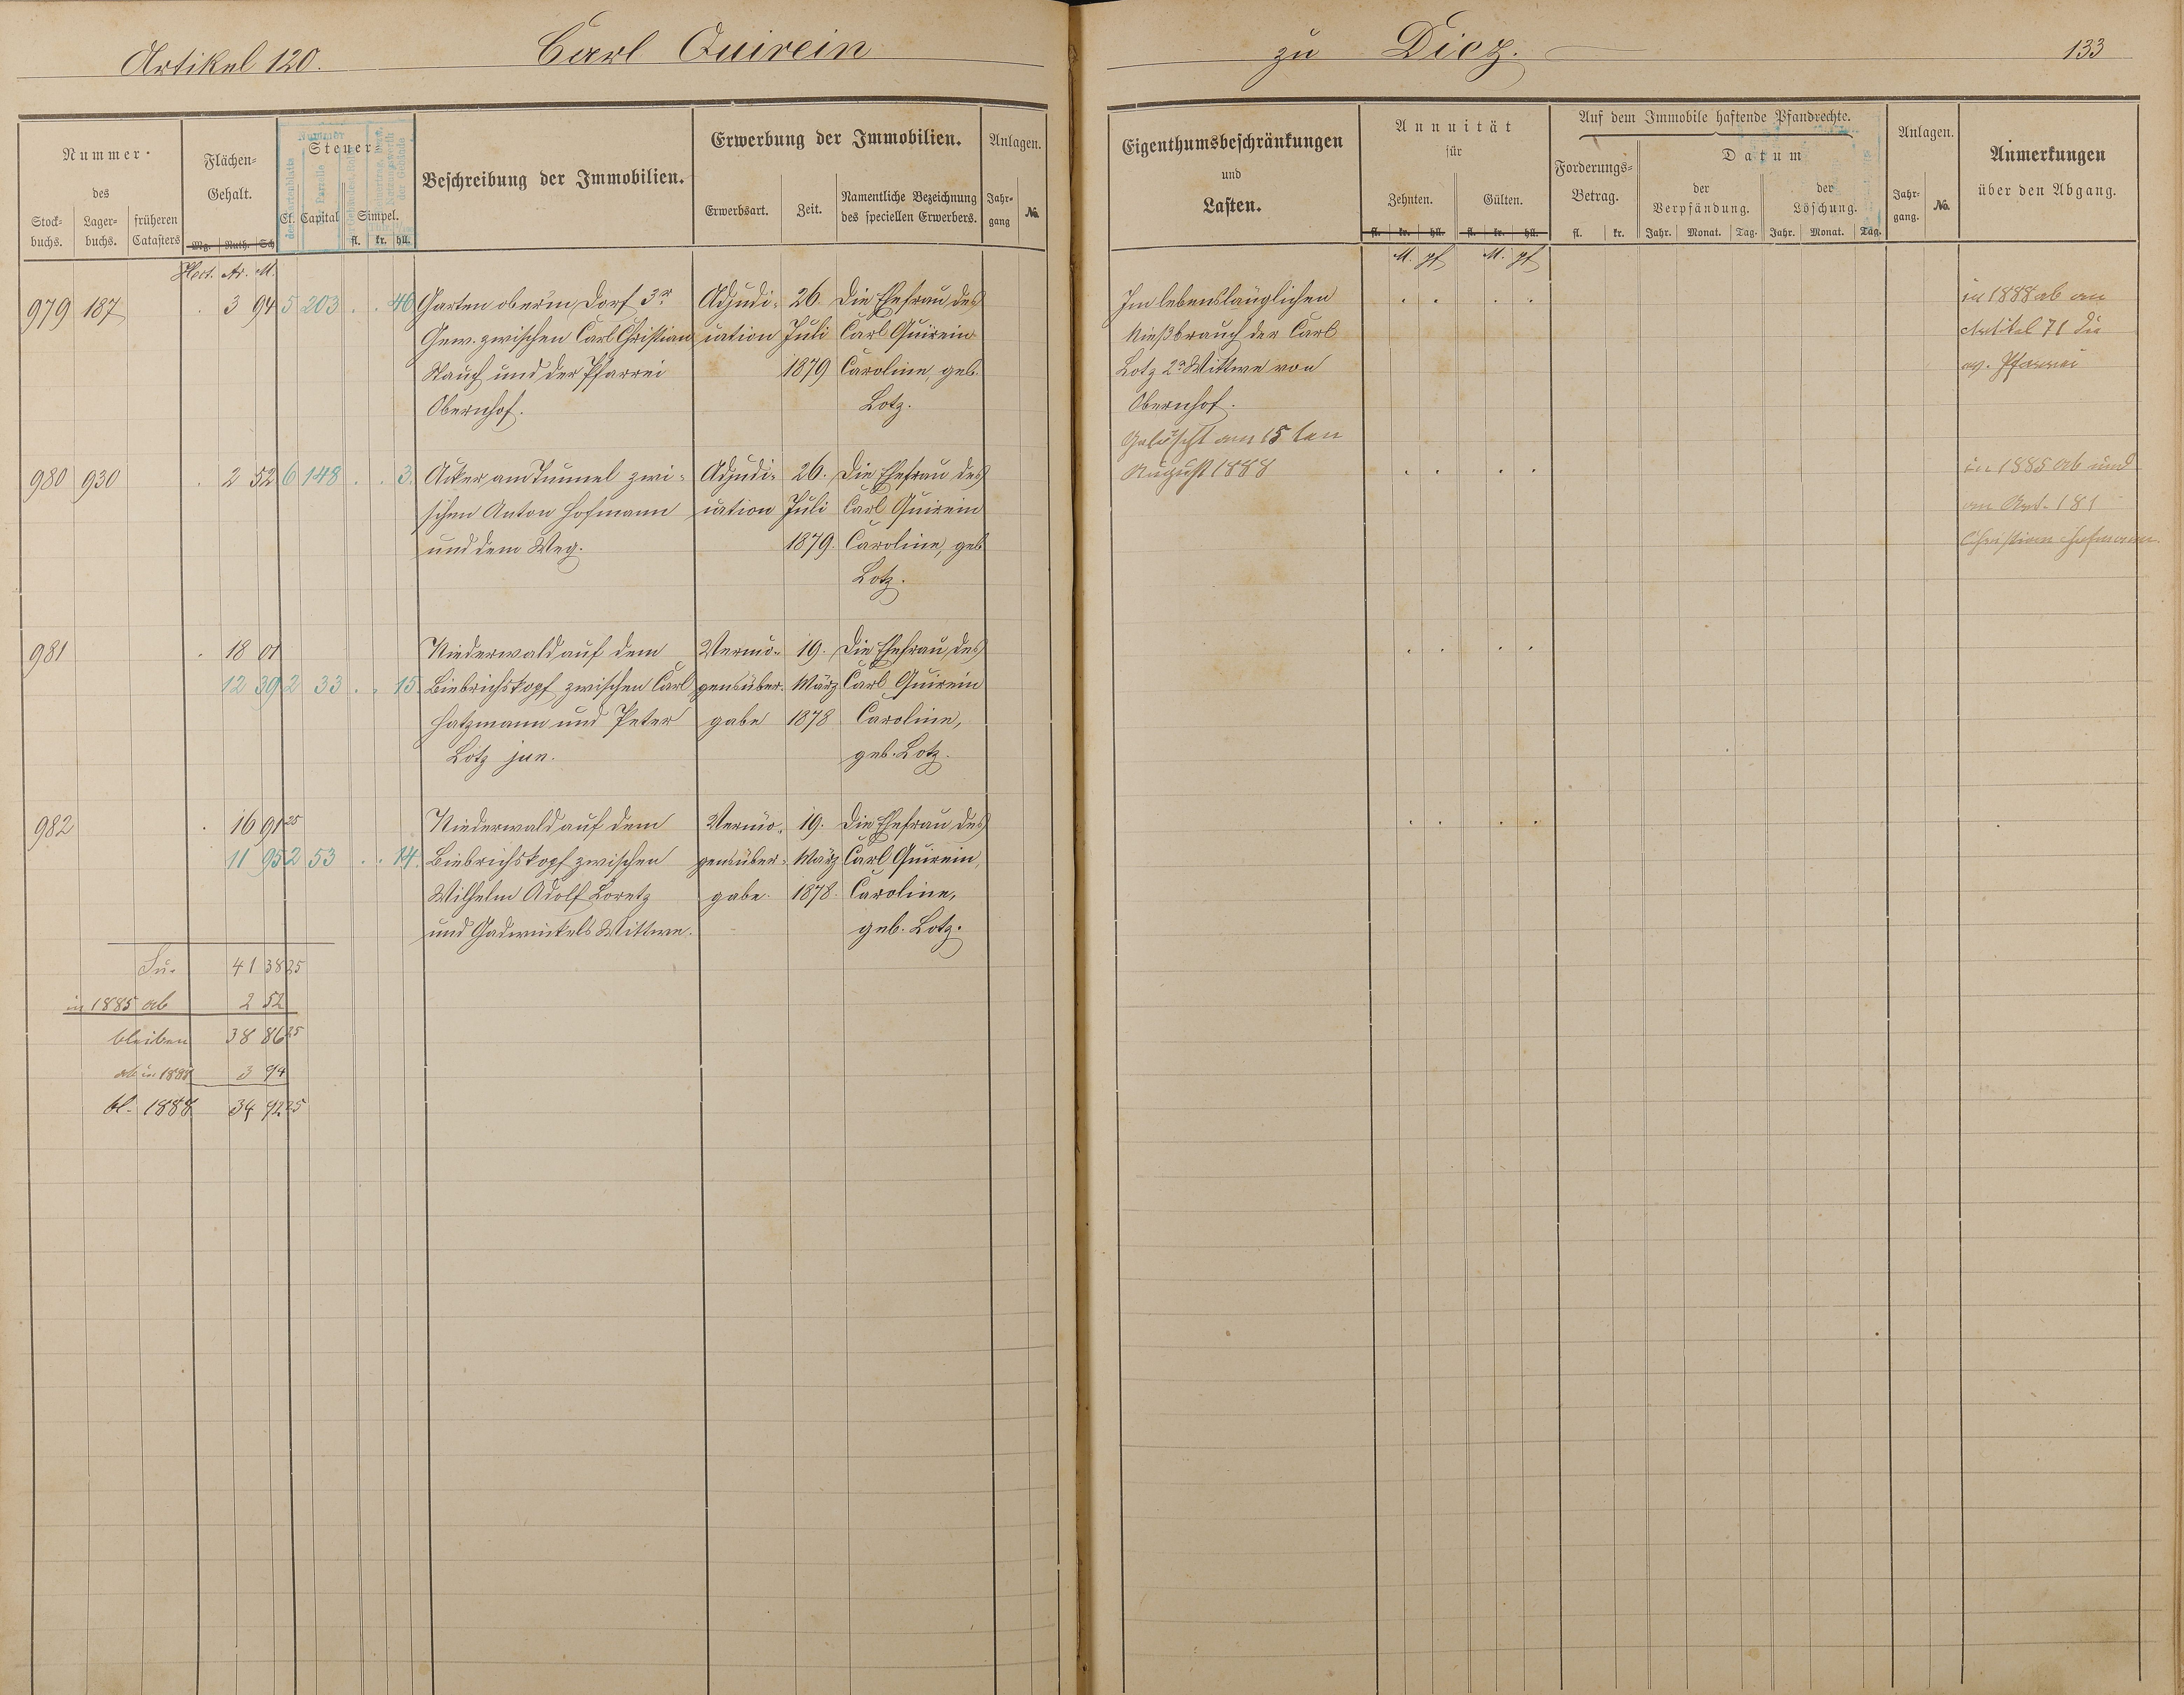 Artikel 120. Carl Quirein zu Diez. 133
Nummer
des
Stock-buchs. Lager-buchs. früheren Catasters
Flächen-Gehalt.
Mg. Ruth. Sch
Hect. Ar. M.
Steuer
Cl. Capital Simpel.
fl. kr. hll.
Beschreibung der Immobilien.
Erwerbung der Immobilien.
Erwerbsart. Zeit. Namentliche Bezeichnung des speciellen Erwerbers.
Anlagen.
Jahr-gang No.
Eigenthumsbeschränkungen
und
Lasten.
Annuität
für
Zehnten. Gülten.
fl. kr. hll. fl. kr. hll.
M. pf M. pf
Auf dem Immobile haftende Pfandrechte.
Forderungs-Betrag.
fl. kr.
Datum
der Verpfändung. der Löschung.
Jahr. Monat. Tag. Jahr. Monat. Tag.
Anlagen.
Jahr-gang. No.
Anmerkungen
über den Abgang.
979 187 . 3 94 5 203 . . 46 Garten oberm Dorf 3r Adjudi- 26. Die Ehefrau des
Gew. zwischen Carl Christian cation Juli Carl Quirein
Stauch und der Pfarrei 1879 Caroline, geb.
Obernhof. Lotz.
Im lebenslänglichen
Nießbrauch der Carl
Lotz 2r Wittwe von
Obernhof.
Gelöscht am 15ten
August 1888
in 1888 ab an
Artikel 71 die
ev. Pfarrei
980 930 . 2 52 6 148 . . 3. Acker am Tunnel zwi- Adjudi- 26. Die Ehefrau des
schen Anton Hofmann cation Juli Carl Quirein
und dem Weg. 1879. Caroline, geb
Lotz.
in 1885 ab und
an Art. 181
Christian Hofmann
981 . 18 01 Niederwald auf dem Vermö- 19. Die Ehefrau des
12 39 2 33 . . 15. Biebrichskopf zwischen Carl gensüber- März Carl Quirein
Hatzmann und Peter gabe 1878 Caroline,
Lotz jun. geb. Lotz.
982 . 16 91 25 Niederwald auf dem Vermö- 19. Die Ehefrau des
11 95 2 53 . . 14. Biebrichskopf zwischen gensüber- März Carl Quirein,
Wilhelm Adolf Loretz gabe. 1878. Caroline,
und Wittwe. geb. Lotz.
Su. 41 38 25
in 1885 ab 2 52
bleiben 38 86 25
ab in 1888 3 94
bl. 1888 34 92 25